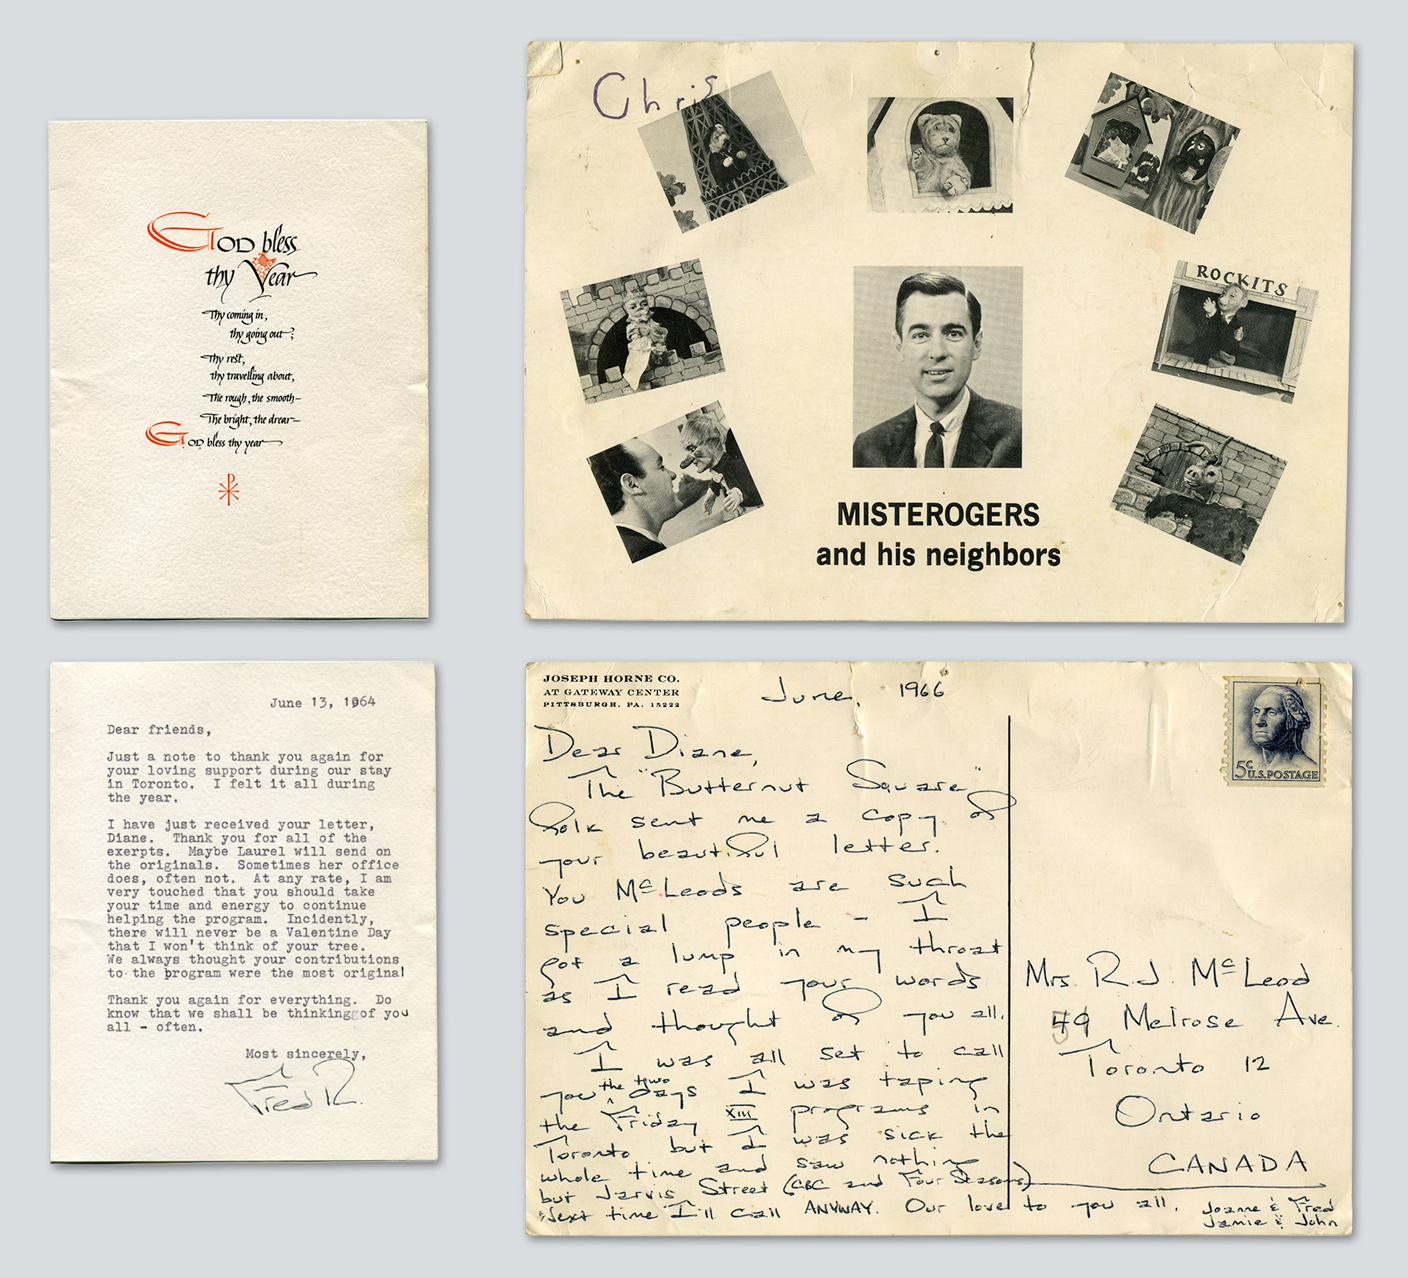 GOD bless
thy Year
Thy coming in,
thy going out;
Thy rest,
thy travelling about,
The rough, the smooth—
The bright, the drear—
GOD bless thy year
Chris
ROCKITS
MISTEROGERS
and his neighbors
June 13, 1964
Dear friends,
Just a note to thank you again for
your loving support during our stay
in Toronto. I felt it all during
the year.
I have just received your letter,
Diane. Thank you for all of the
exerpts. Maybe Laurel will send on
the originals. Sometimes her office
does, often not. At any rate, I am
very touched that you should take
your time and energy to continue
helping the program. Incidently,
there will never be a Valentine Day
that I won't think of your tree.
We always thought your contributions
to the program were the most original
Thank you again for everything. Do
know that we shall be thinking of you
all - often.
Most sincerely,
Fred R.
JOSEPH HORNE CO.
AT GATEWAY CENTER
PITTSBURGH, PA. 15222
June, 1966
Dear Diane,
The "Butternut Square"
folk sent me a copy of
your beautiful letter.
You McLeods are such
special people - I
got a lump in my throat
as I read your words
and thought of you all.
I was all set to call
you the two days I was taping
the Friday XIII programs in
Toronto but I was sick the
whole time and saw nothing
but Jarvis Street (CBC and Four Seasons)
Next time I'll call ANYWAY. Our love to you all,
Joanne & Fred
Jamie & John
5c U.S. POSTAGE
Mrs. R.J. McLeod
59 Melrose Ave.
Toronto 12
Ontario
CANADA